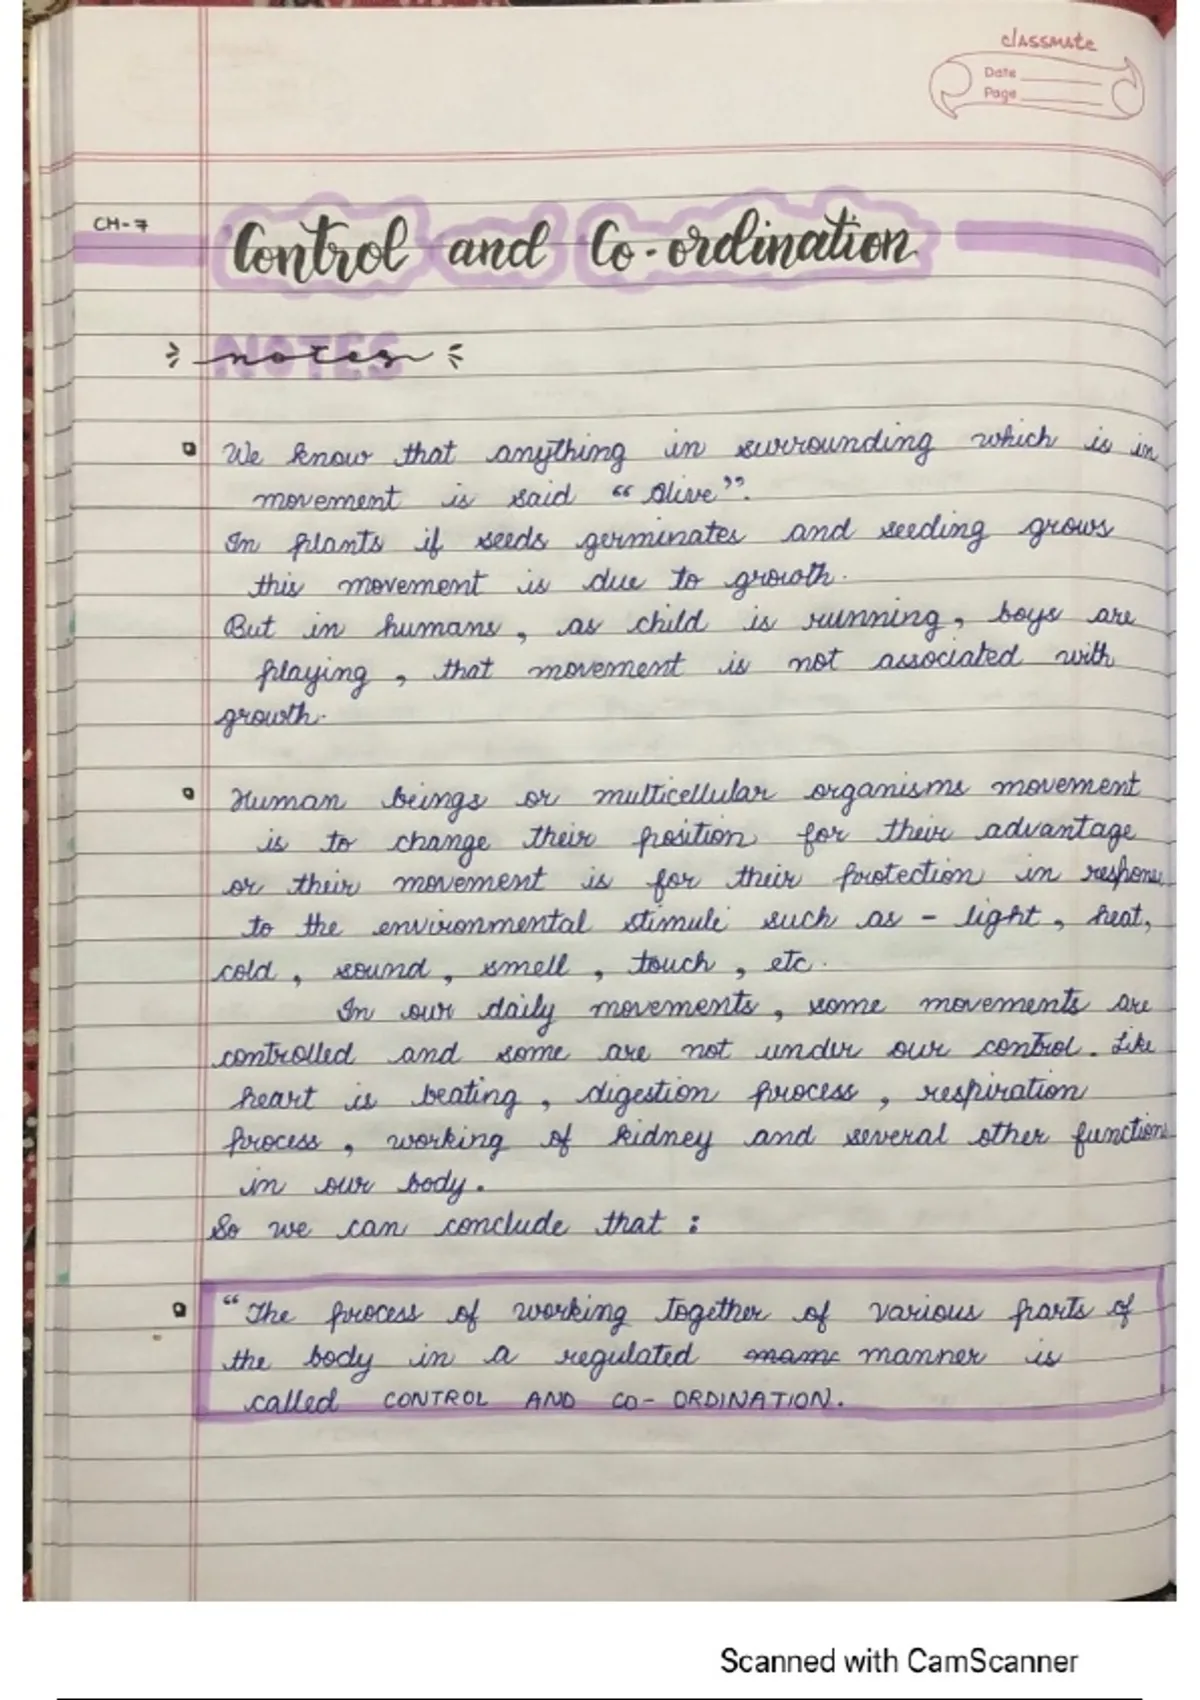 classmate
Date
Page
CH-7
Control and Co-ordination
NOTES
notes
We know that anything in surrounding which is in
movement is said "Alive".
In plants if seeds germinates and seeding grows
this movement is due to growth.
But in humans, as child is running, boys are
playing, that movement is not associated with
growth.
Human beings or multicellular organisms movement
is to change their position for their advantage
or their movement is for their protection in response
to the environmental stimuli such as - light, heat,
cold, sound, smell, touch, etc.
In our daily movements, some movements are
controlled and some are not under our control. Like
heart is beating, digestion process, respiration
process, working of kidney and several other functions
in our body.
So we can conclude that :
"The process of working together of various parts of
the body in a regulated manner is
called CONTROL AND CO-ORDINATION.
Scanned with CamScanner